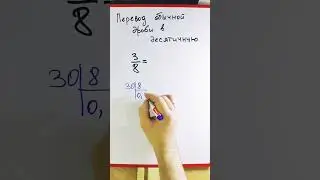 Перевод обычной
дроби в
десятичную
3
8 =
30 8
0,